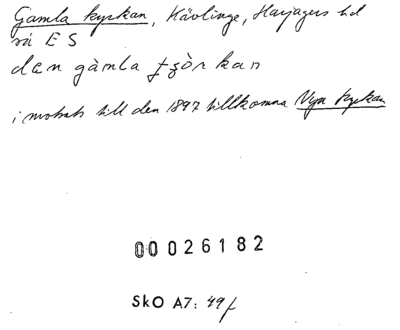 Gamla kyrkan, Kävlinge, Harjagers hd
rå E S
den gàmla
i motsats till den 1897 tillkomna Nya kyrkan
00026182
SkO A7: 49f